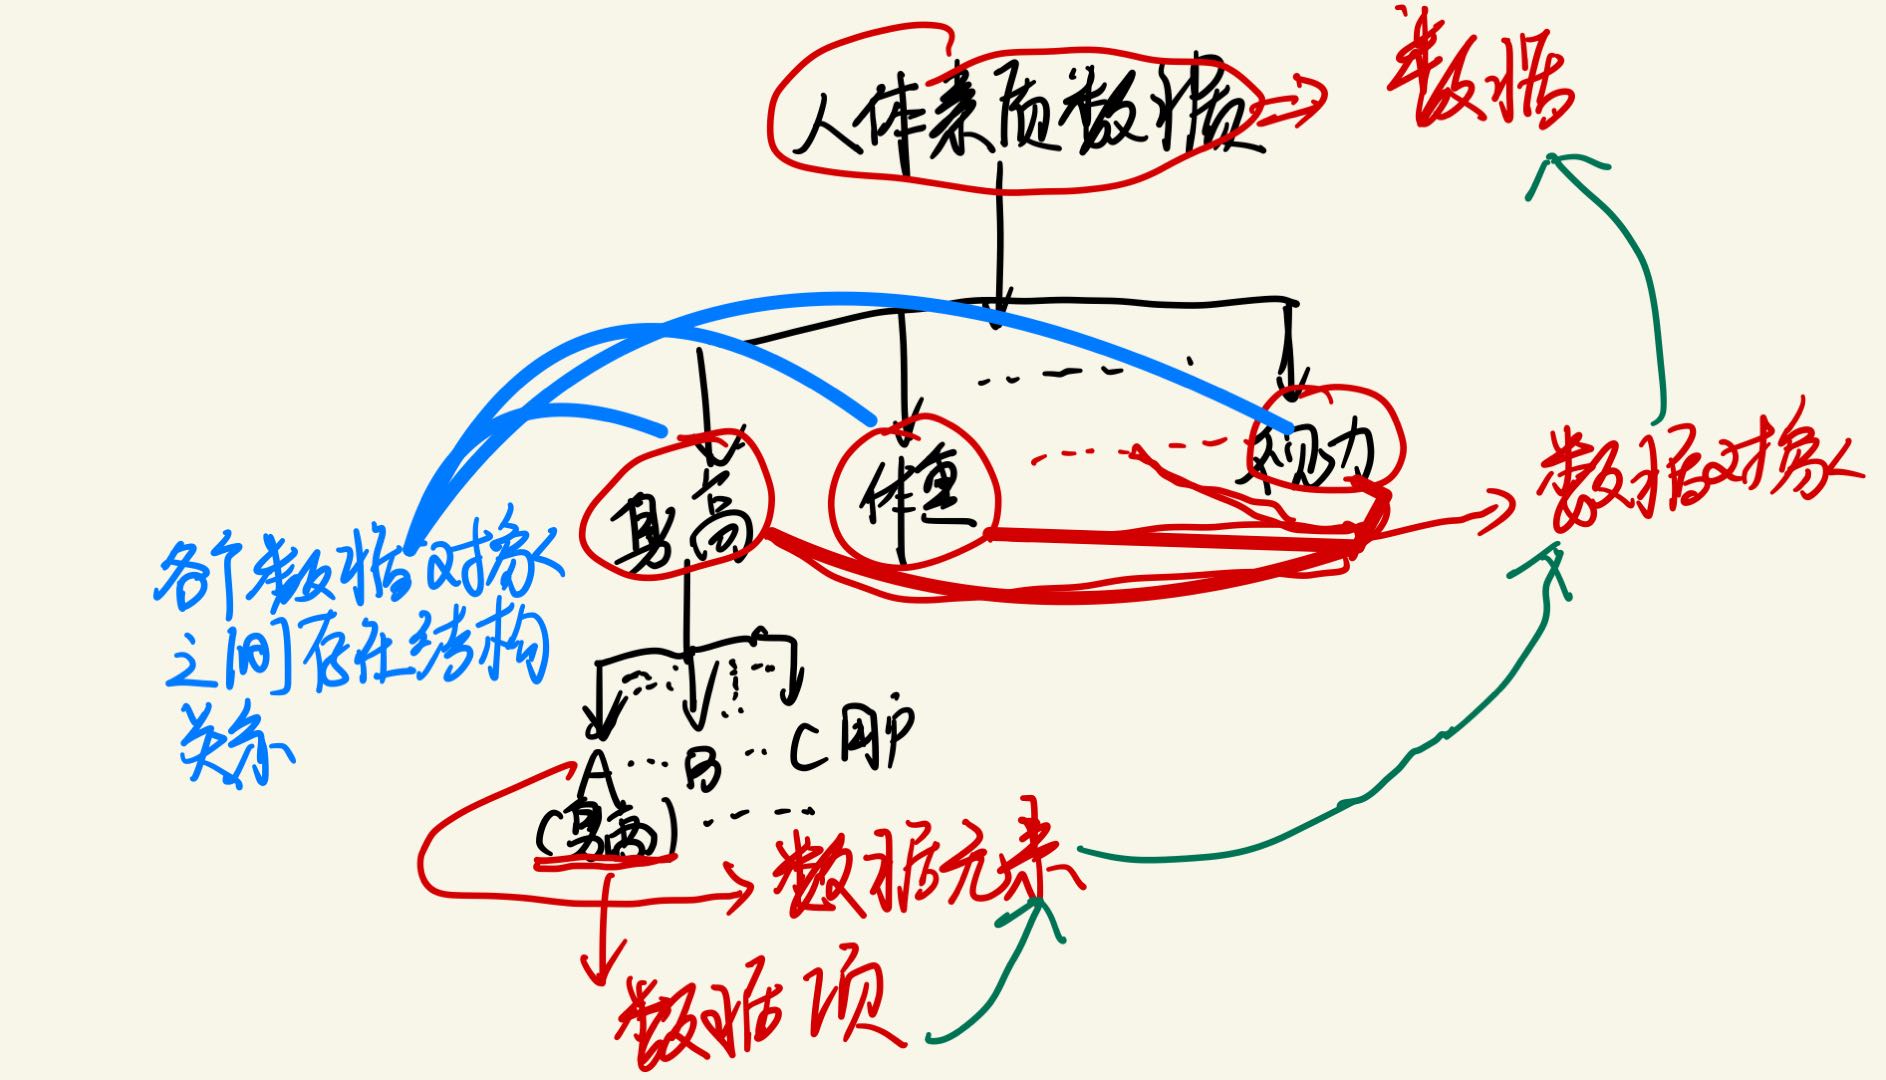 人体素质数据
数据
身高
体重
视力
数据对象
各个数据对象
之间存在结构
关系
A
B
C用户
(身高)
数据元素
数据项